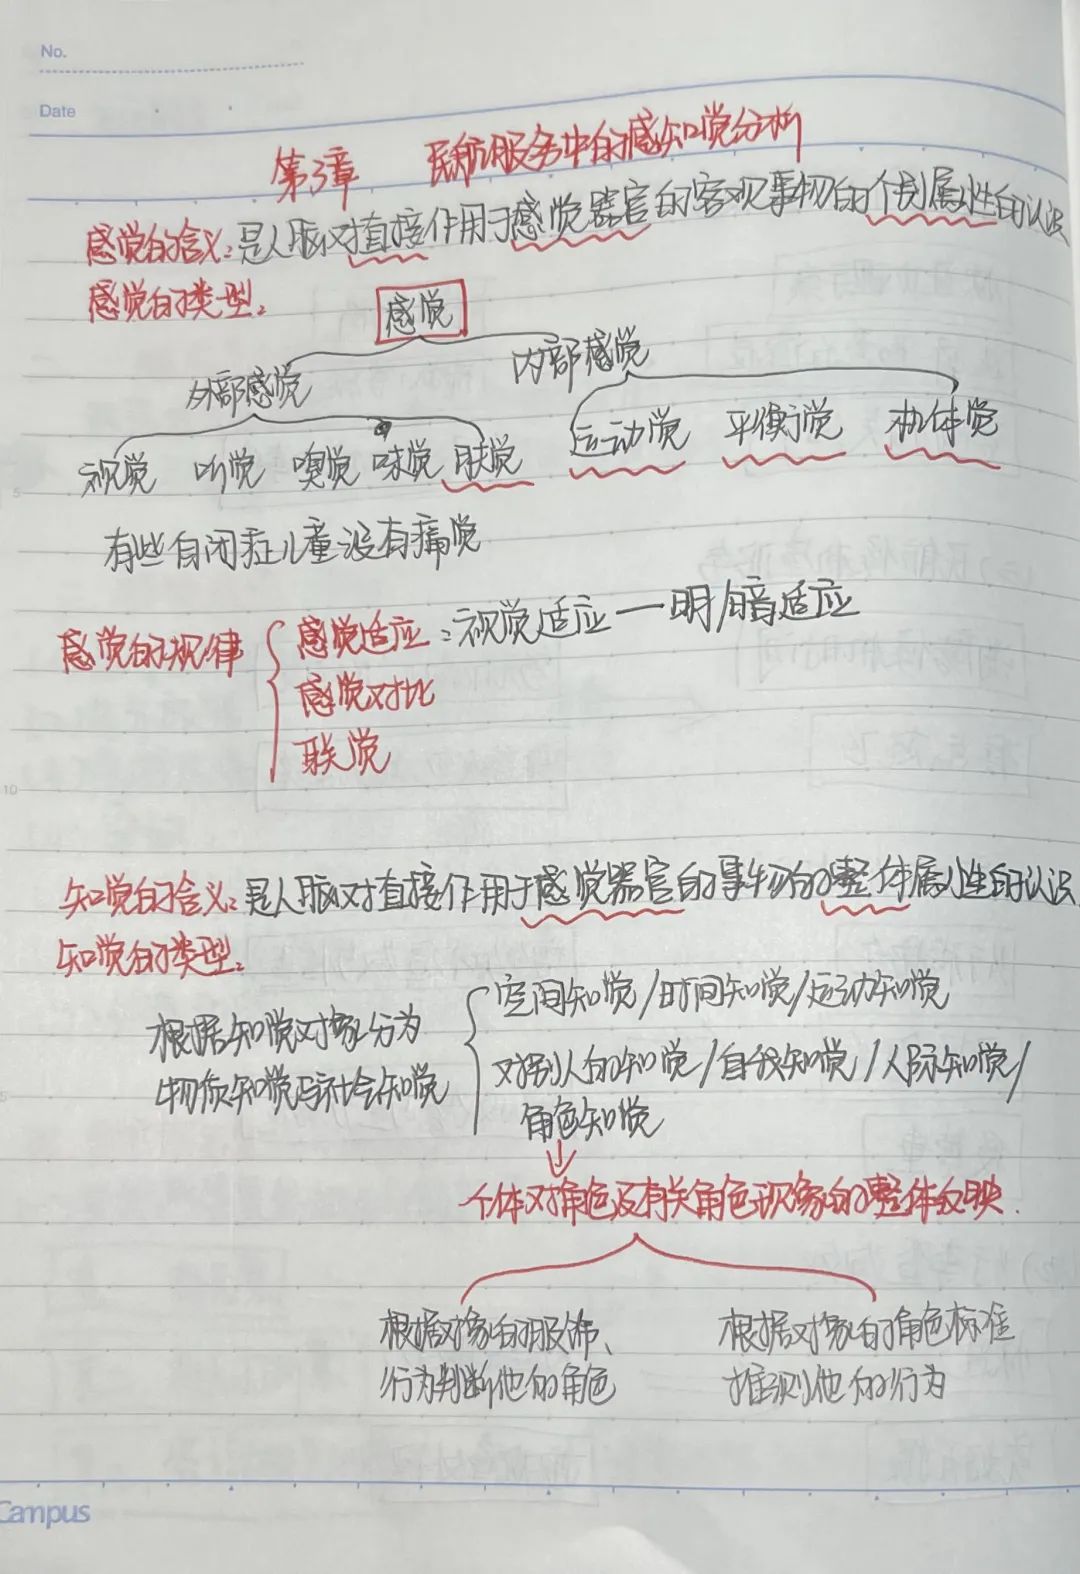 No.
Date
第3章 民航服务中的感知觉分析
感觉的含义:是人脑对直接作用于感觉器官的客观事物的个别属性的认识
感觉的类型:
感觉
外部感觉 内部感觉
视觉 听觉 嗅觉 味觉 肤觉 运动觉 平衡觉 机体觉
有些自闭症儿童没有痛觉
感觉的规律 感觉适应:视觉适应—明/暗适应
感觉对比
联觉
知觉的含义:是人脑对直接作用于感觉器官的事物的整体属性的认识
知觉的类型:
根据知觉对象分为
物质知觉与社会知觉
空间知觉/时间知觉/运动知觉
对别人的知觉/自我知觉/人际知觉/
角色知觉
个体对角色及有关角色现象的整体反映.
根据对象的服饰、
行为判断他的角色
根据对象的角色标准
推测他的行为
Campus